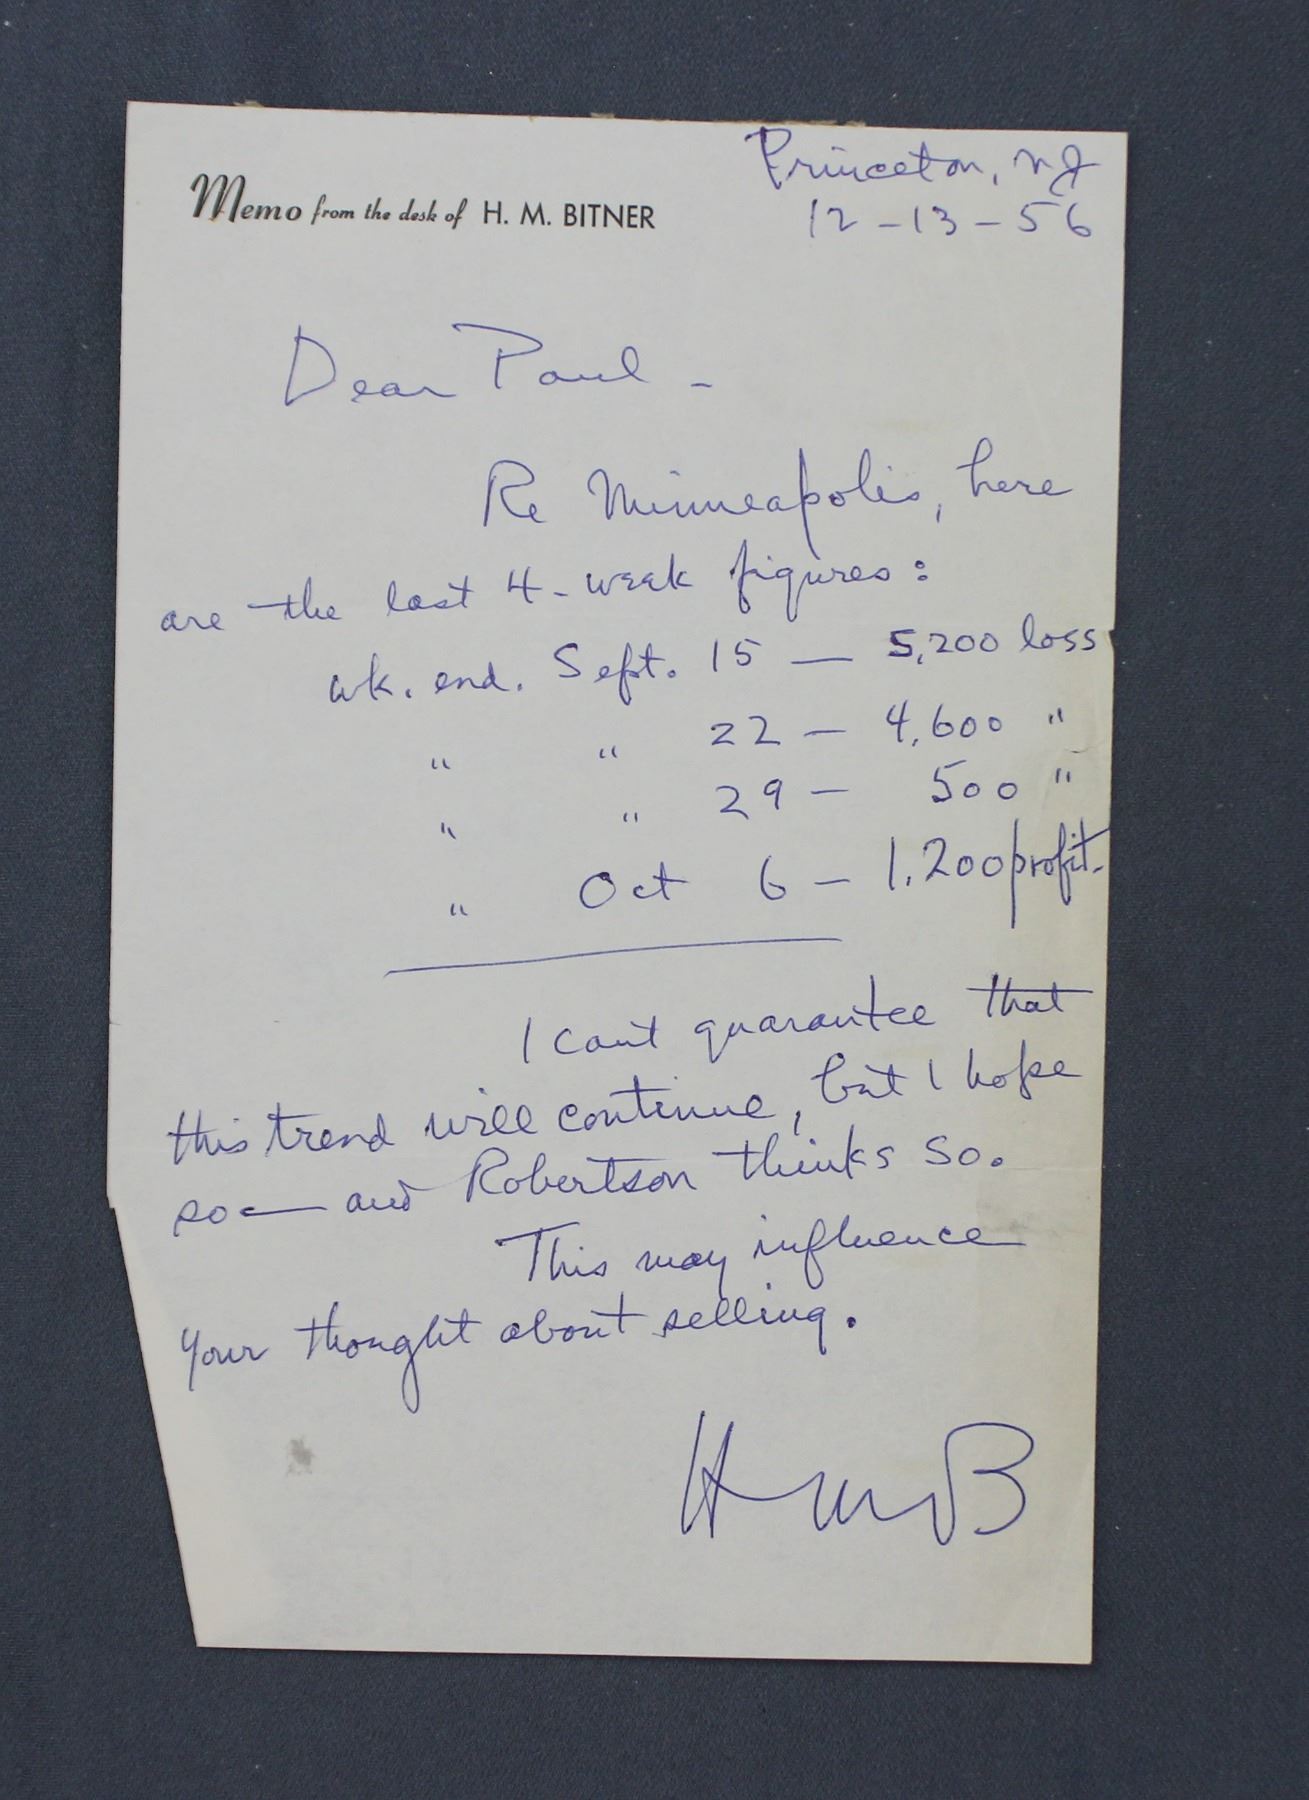 Memo from the desk of H. M. BITNER
Princeton, NJ
12-13-56
Dear Paul -
Re Minneapolis, here
are the last 4-week figures:
wk. end. Sept. 15 — 5,200 loss
" " 22 — 4,600 "
" " 29 — 500 "
" Oct 6 — 1,200 profit.
I can't guarantee that
this trend will continue, but I hope
so — and Robertson thinks so.
This may influence
your thought about selling.
HMB